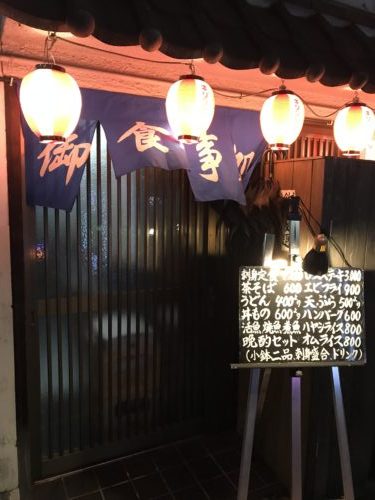 御食事処
刺身定食 ステーキ3000
茶そば 600 エビフライ 900
うどん 400から 天ぷら 500から
丼もの 600から ハンバーグ 600
活魚 焼魚 煮魚 ハヤシライス 800
晩酌セット オムライス 800
(小鉢二品、刺身盛合、ドリンク)